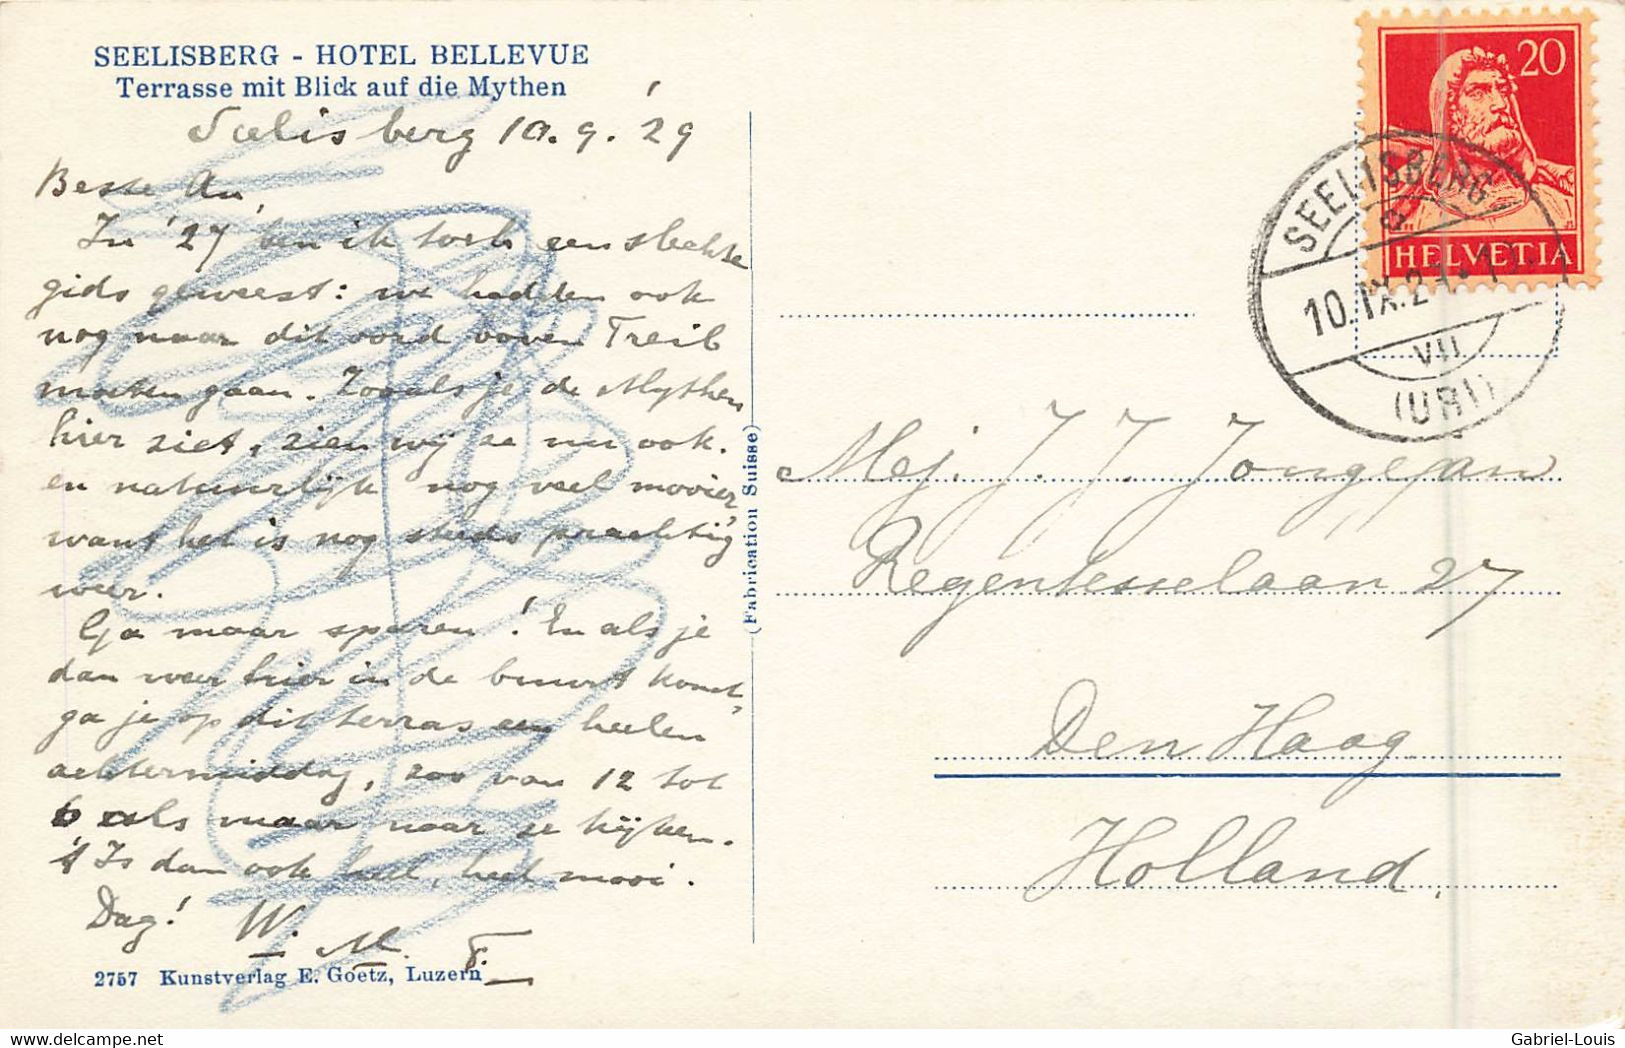 SEELISBERG - HOTEL BELLEVUE
Terrasse mit Blick auf die Mythen
Seelisberg 10.9.'29
Beste An,
In '27 ben ik toch een slechte
gids geweest: we hadden ook
nog naar dit oord boven Treib
moeten gaan. Zooals je de Mythen
hier ziet, zien wij ze nu ook.
en natuurlijk nog veel mooier,
want het is nog steeds prachtig
weer.
Ga maar sparen! En als je
dan weer hier in de buurt komt,
ga je op dit terras een heelen
achtermiddag, zoo van 12 tot
6 als maar naar ze kijken.
't Is dan ook heel, heel mooi.
Dag! W.
M. F.
2757 Kunstverlag E. Goetz, Luzern
(Fabrication Suisse)
20
HELVETIA
SEELISBERG
a
10.IX.29
VII
(URI)
Mej. J. J. Jongejan
Regentesselaan 27
Den Haag
Holland.
www.delcampe.net
Gabriel-Louis